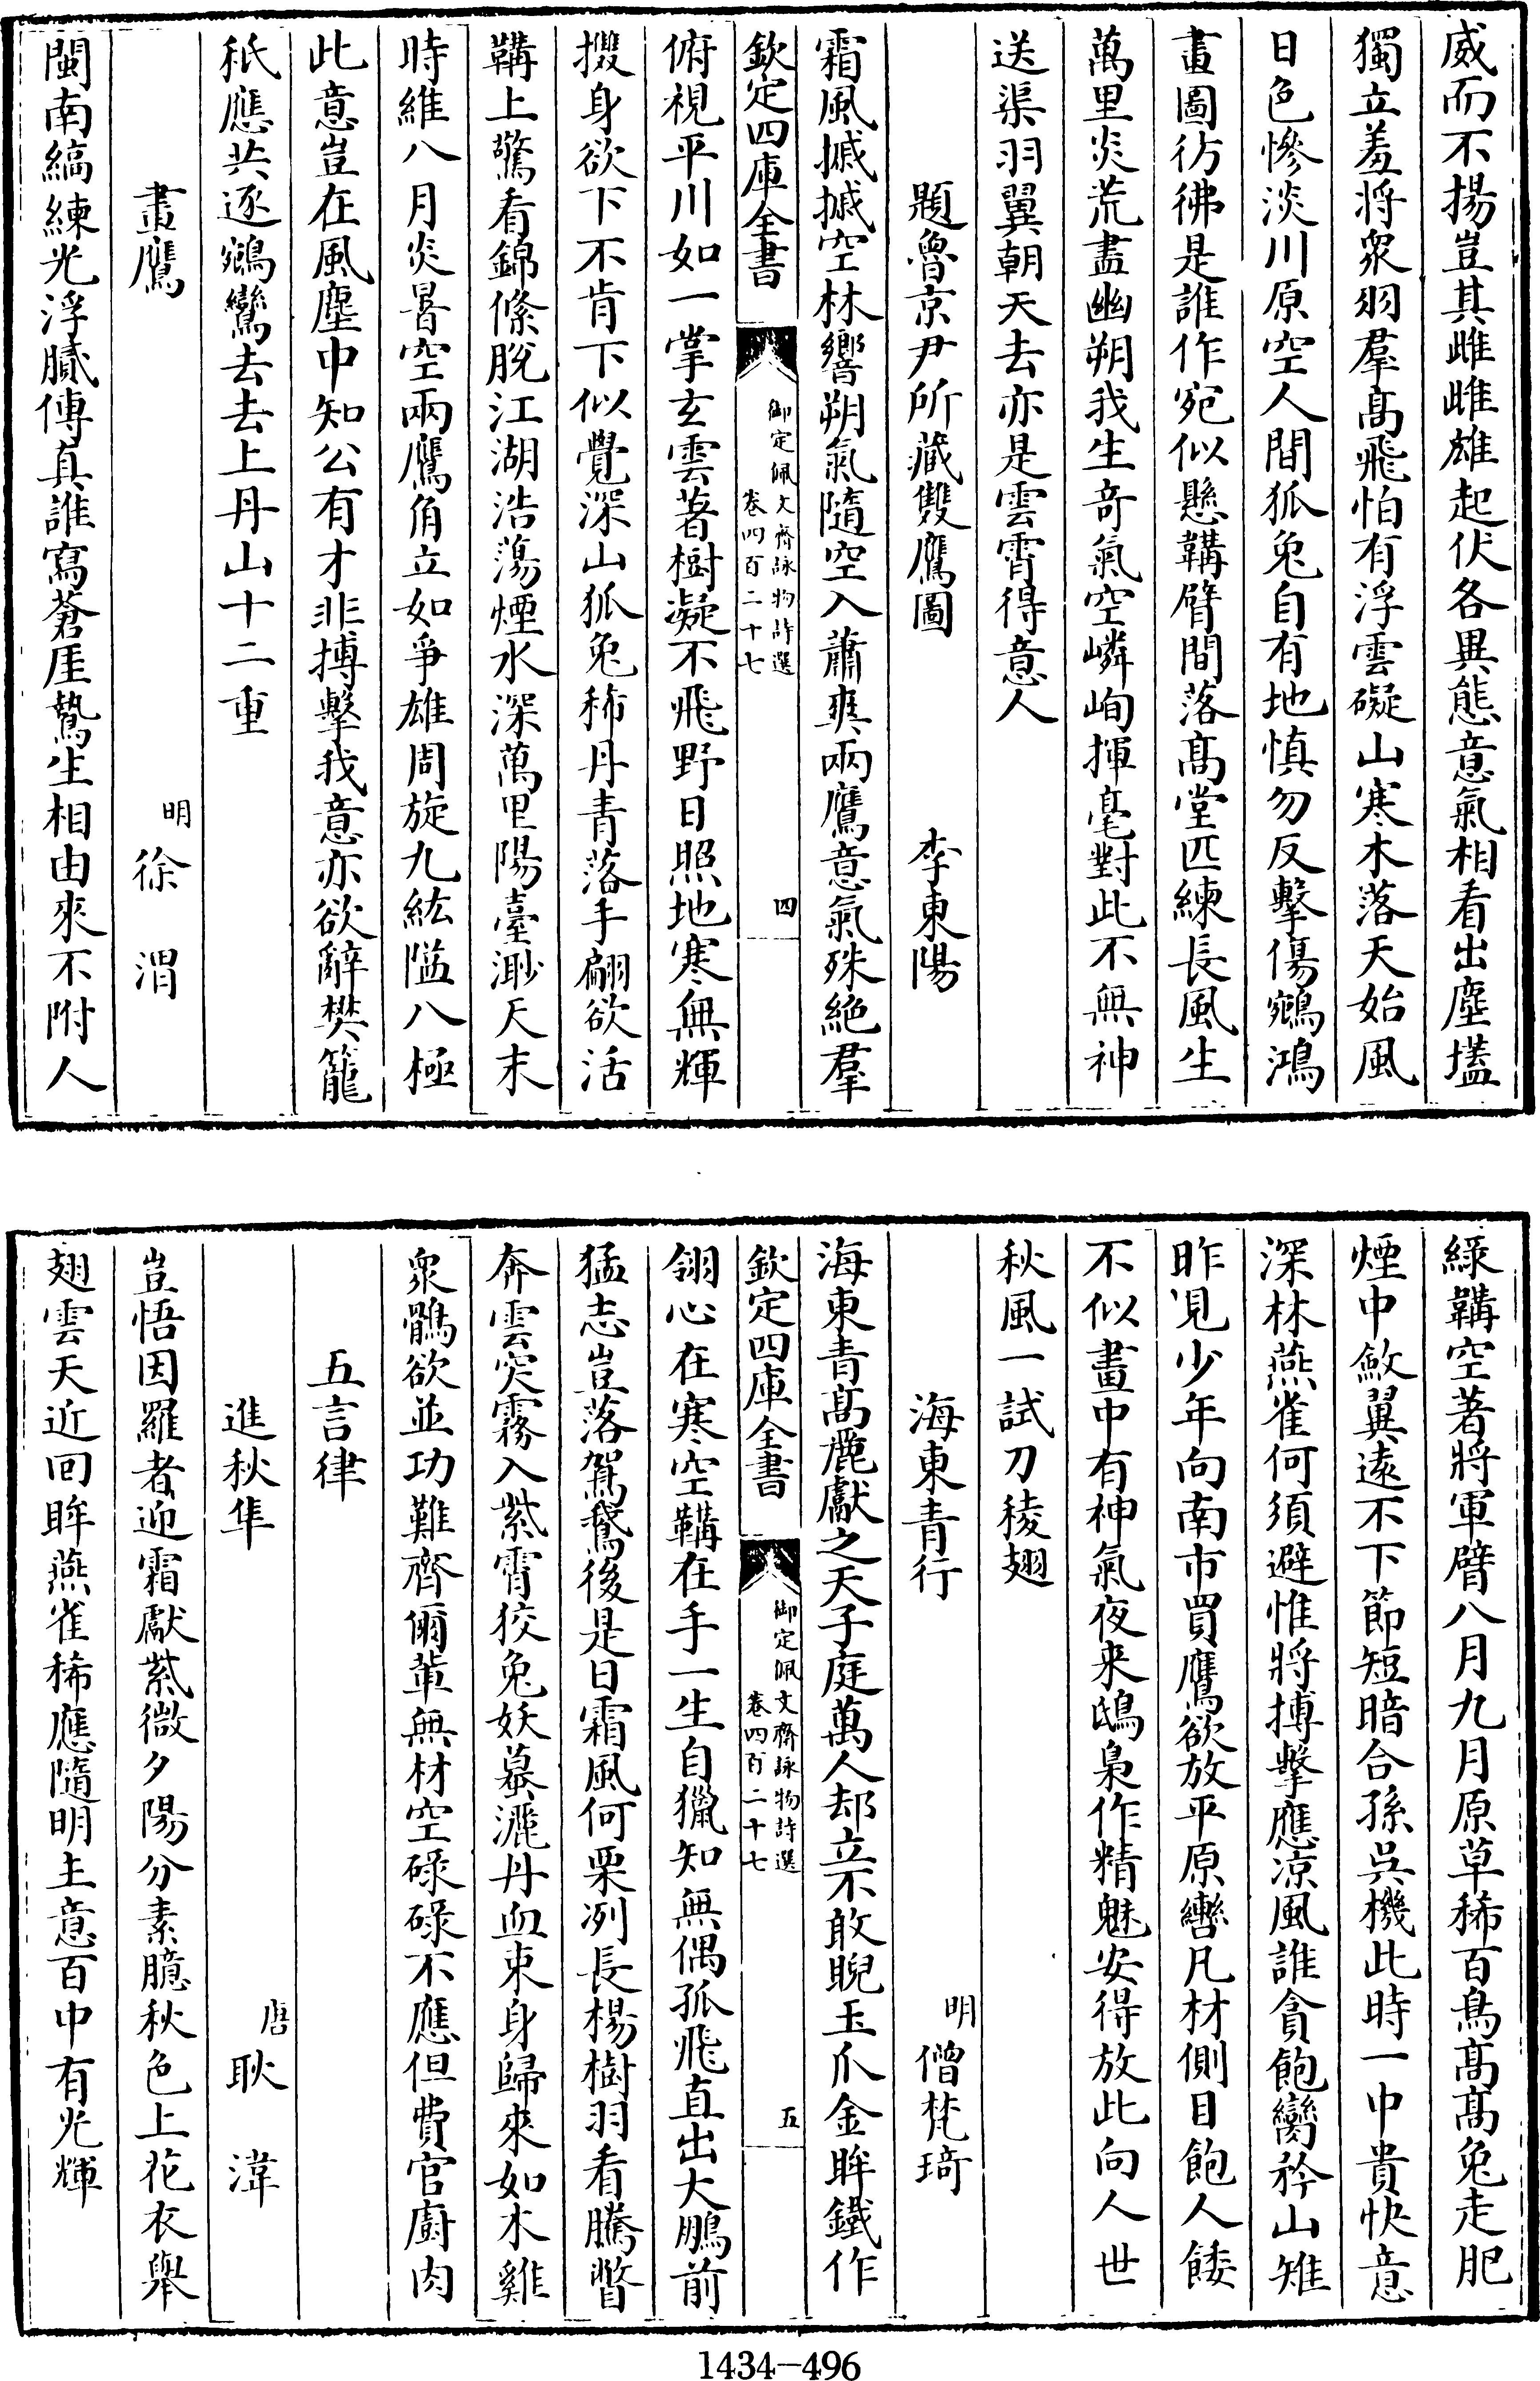 威而不揚豈其雌雌雄起伏各異態意氣相看出塵壒
獨立羞將衆羽羣髙飛怕有浮雲礙山寒木落天始風
日色慘淡川原空人間狐兔自有地慎勿反擊傷鵷鴻
畫圖彷彿是誰作宛似懸韝臂間落髙堂匹練長風生
萬里炎荒盡幽朔我生奇氣空嶙峋揮毫對此不無神
送渠羽翼朝天去亦是雲霄得意人
題魯京尹所藏雙鷹圖 李東陽
霜風摵摵空林響朔氣隨空入蕭爽兩鷹意氣殊絶羣
欽定四庫全書 御定佩文齋詠物詩選 卷四百二十七 四
俯視平川如一掌玄雲著樹凝不飛野日照地寒無輝
㩳身欲下不肯下似覺深山狐兔稀丹青落手翩欲活
韝上驚看錦絛脫江湖浩蕩煙水深萬里陽臺渺天末
時維八月炎暑空兩鷹角立如爭雄周旋九紘隘八極
此意豈在風塵中知公有才非搏擊我意亦欲辭樊籠
秪應共逐鵷鸞去去上丹山十二重
畫鷹 明 徐渭
閩南縞練光浮膩傳真誰寫蒼厓鷙生相由來不附人
綠韝空著將軍臂八月九月原草稀百鳥髙髙兔走肥
煙中斂翼遠不下節短暗合孫吳機此時一中貴快意
深林燕雀何須避惟將搏擊應凉風誰貪飽臠矜山雉
昨見少年向南市買鷹欲放平原轡凡材側目飽人餧
不似畫中有神氣夜来鴟梟作精魅安得放此向人世
秋風一試刀稜翅
海東青行 明 僧梵琦
海東青髙麗獻之天子庭萬人却立不敢睨玉爪金眸鐵作
欽定四庫全書 御定佩文齋詠物詩選 卷四百二十七 五
翎心在寒空韝在手一生自獵知無偶孤飛直出大鵬前
猛志豈落鴐鵝後是日霜風何栗冽長楊樹羽看騰瞥
奔雲突霧入紫霄狡兔妖蟇灑丹血束身歸來如木雞
衆鶻欲並功難齊爾輩無材空碌碌不應但費官廚肉
五言律
進秋隼 唐 耿湋
豈悟因羅者迎霜獻紫微夕陽分素臆秋色上花衣舉
翅雲天近回眸燕雀稀應隨明主意百中有光輝
1434-496